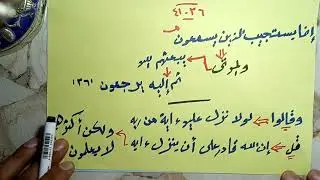 ٤١-٣٦
إنما يستجيب الذين يسمعون
والموتى يبعثهم الله
ثم إليه يرجعون ٣٦
وقالوا لولا نزل عليه ءاية من ربه
قل إن الله قادر على أن ينزل ءاية ولكن أكثرهم
لا يعلمون